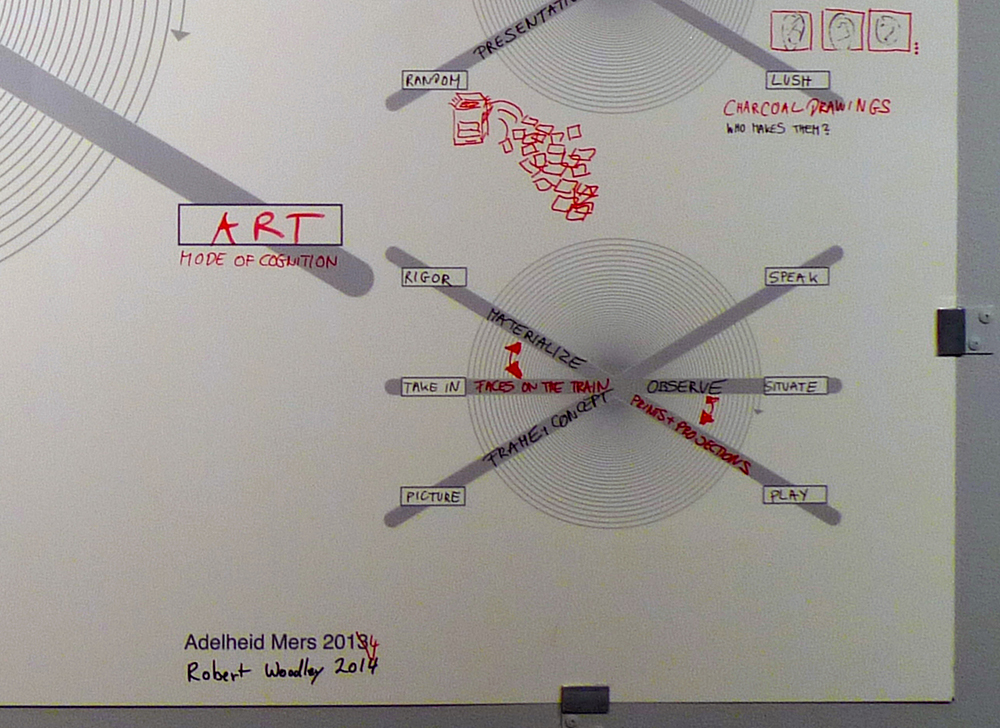 PRESENTATI
RANDOM
LUSH
CHARCOAL DRAWINGS
WHO MAKES THEM?
ART
MODE OF COGNITION
RIGOR
SPEAK
MATERIALIZE
TAKE IN
FACES ON THE TRAIN
OBSERVE
SITUATE
PRINTS + PROJECTIONS
FRAME, CONCEPT
PICTURE
PLAY
Adelheid Mers 2013
4
Robert Woodley 2014